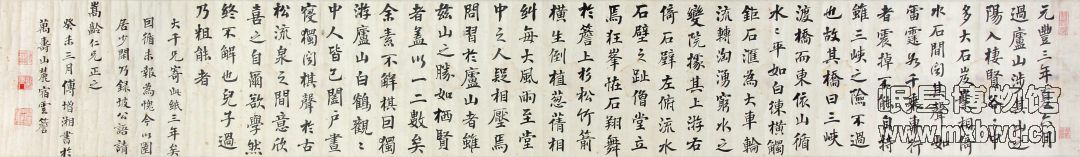 元豐三年夏六月
過廬山涉其
陽入棲賢谷谷中
多大石岌嶪相倚
水石間其聲如
雷霆如千乘車行
者震掉不能自持
雖三峽之險不過
也故其橋曰三峽
渡橋而東依山循
水〻平如白練橫觸
鉅石滙為大車輪
流轉洶湧窮水之
變院據其上游右
倚石壁左俯流水
石壁之趾僧堂立
焉狂峯怪石翔舞
於簷上杉松竹箭
橫生倒植葱蒨相
糾每大風雨至堂
中之人疑相壓焉
問習於廬山者雖
茲山之勝如棲賢
者盖以一二數矣
余素不解棋囘獨
游廬山白鶴觀〻
中人皆已闔户晝
寢獨聞棋聲於古
松流泉之間意欣
喜之自爾欲學然
終不解也兒子過
乃粗能者
大千兄寄此紙三年矣
因循未報為愧今以圖
居少閒乃錄坡公語請
嵩齡仁兄正之
癸未三月傅增湘書於
萬壽山麓宿雲簷
博物館